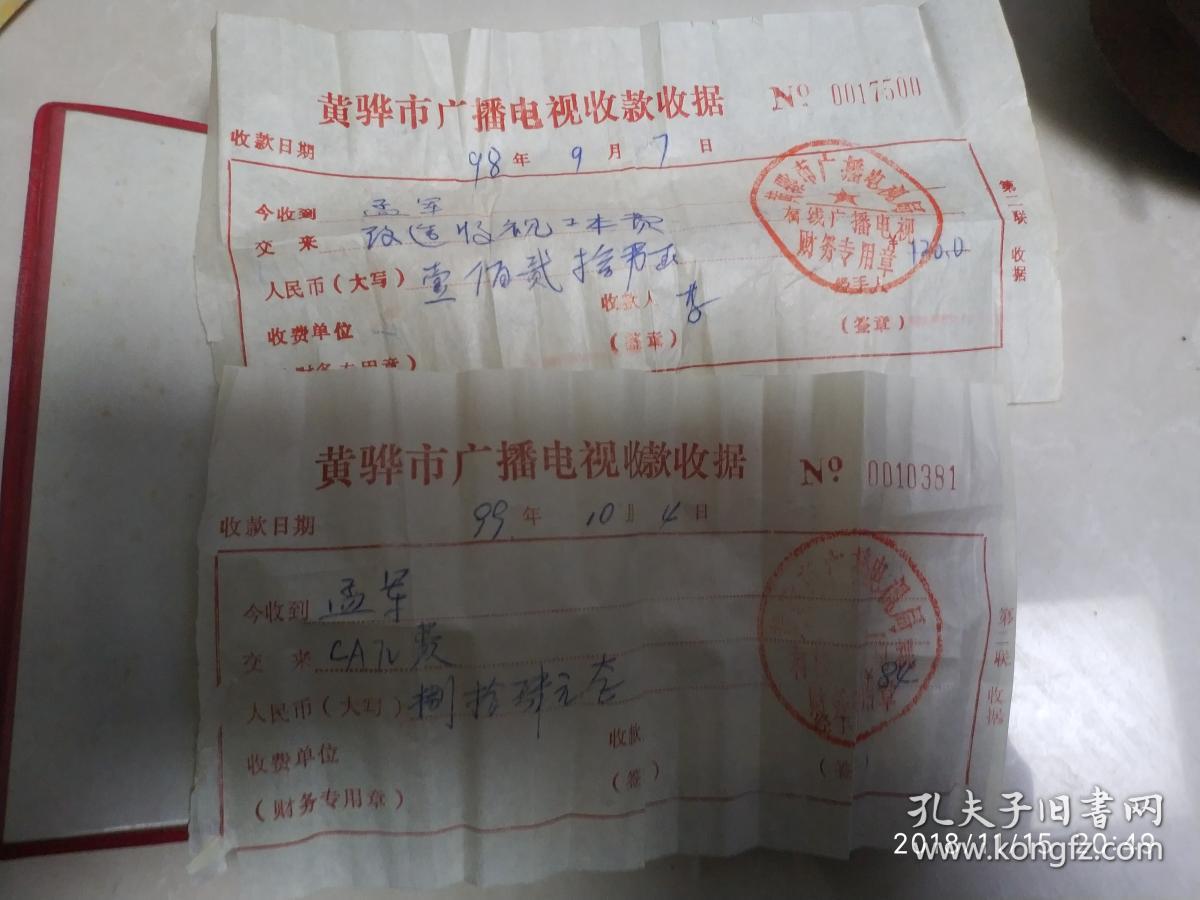 黄骅市广播电视收款收据 Nº 0017500
收款日期 98年 9月 7日
今收到 孟军
交来 改造收视工本费
人民币（大写）壹佰贰拾 120.0
收费单位 收款人 李 经手人
（签章） （签章）
（财务专用章）
第二联 收据
广播电视局
有线广播电视
财务专用章
黄骅市广播电视收款收据 Nº 0010381
收款日期 99年 10月 4日
今收到 孟军
交来 CATV费
人民币（大写）捌拾肆元 84
收费单位 收款
（签） （签）
（财务专用章）
第二联 收据
孔夫子旧书网
2018/11/15 20:49
www.kongfz.com